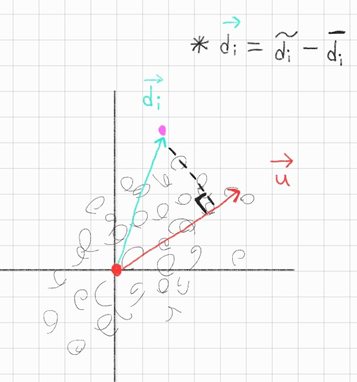 * \vec{d_i} = \tilde{d_i} - \bar{d_i}
\vec{d_i}
\vec{u}